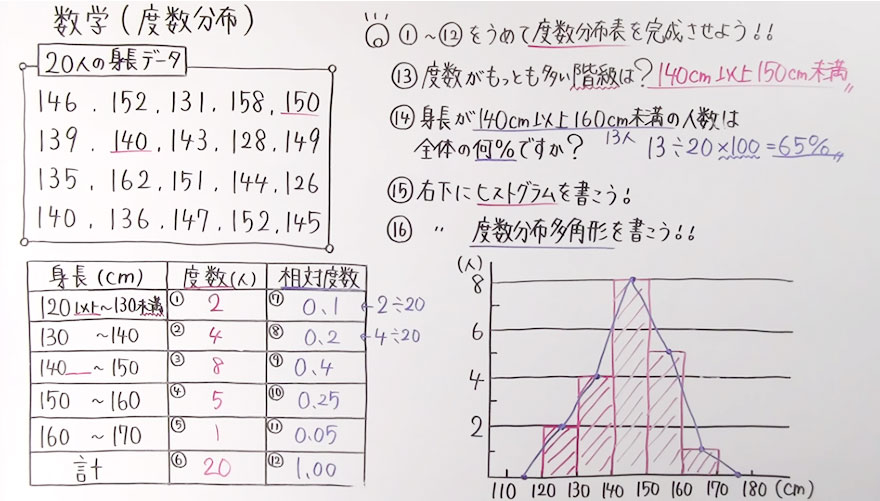 数学(度数分布)
20人の身長データ
146. 152. 131. 158. 150
139. 140. 143. 128. 149
135. 162. 151. 144. 126
140. 136. 147. 152. 145
①~⑫をうめて度数分布表を完成させよう!!
⑬度数がもっとも多い階級は?140cm以上150cm未満
⑭身長が140cm以上160cm未満の人数は
全体の何%ですか? 13人 13÷20×100=65%
⑮右下にヒストグラムを書こう!
⑯ 〃 度数分布多角形を書こう!!
身長(cm) 度数(人) 相対度数
120以上~130未満 ① 2 ⑦ 0.1 ←2÷20
130 ~140 ② 4 ⑧ 0.2 ←4÷20
140 ~150 ③ 8 ⑨ 0.4
150 ~160 ④ 5 ⑩ 0.25
160 ~170 ⑤ 1 ⑪ 0.05
計 ⑥ 20 ⑫ 1.00
(人)
8
6
4
2
110 120 130 140 150 160 170 180 (cm)